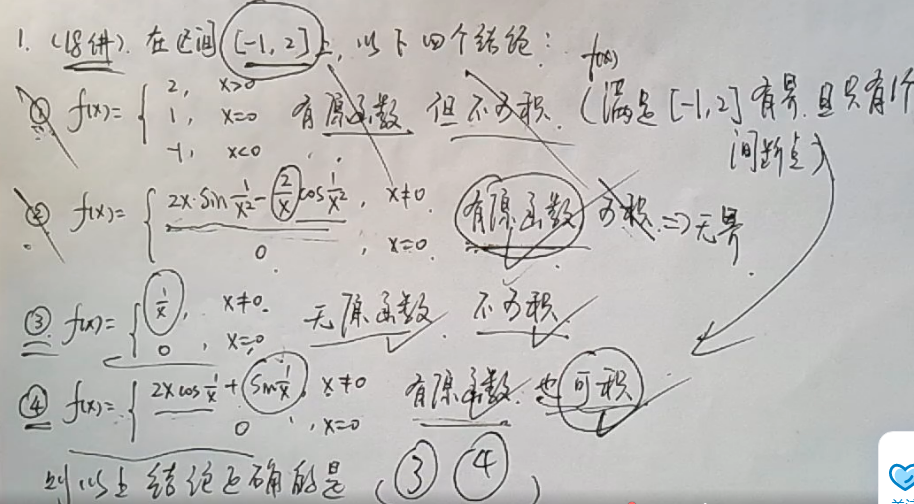 1. (18讲). 在区间 [-1, 2] 上, 以下四个结论:
① f(x) = { 2, x>0
1, x=0
-1, x<0 有原函数 但不可积. ( f(x) 满足 [-1, 2] 有界 且只有1个
间断点 )
② f(x) = { 2x·sin 1/x² - 2/x cos 1/x², x≠0
0, x=0 有原函数 可积 ⇒ 无界.
③ f(x) = { 1/x, x≠0.
0, x=0 无原函数 不可积.
④ f(x) = { 2x cos 1/x + sin 1/x, x≠0
0, x=0 有原函数 也可积
则以上结论正确的是 ( ③ ④ )